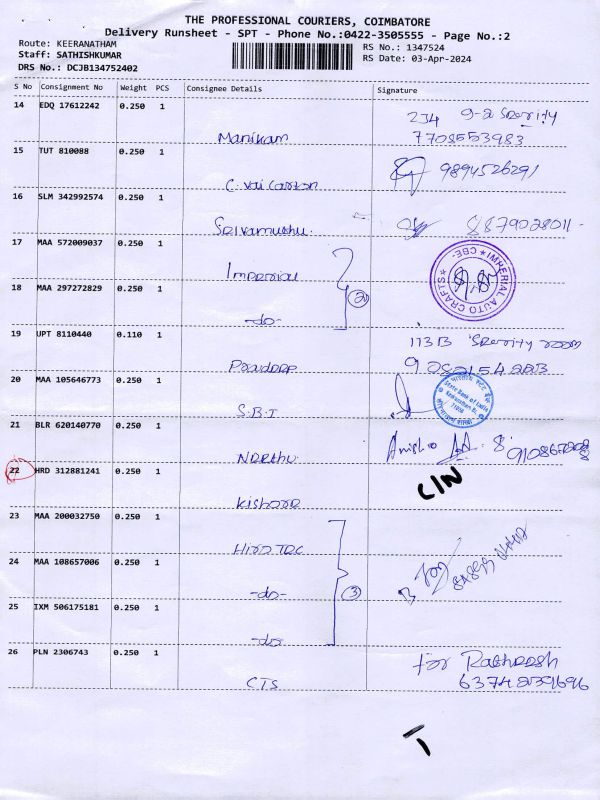 THE PROFESSIONAL COURIERS, COIMBATORE
Delivery Runsheet - SPT - Phone No.:0422-3505555 - Page No.:2
Route: KEERANATHAM
Staff: SATHISHKUMAR
DRS No.: DCJB134752402
RS No.: 1347524
RS Date: 03-Apr-2024
S No Consignment No Weight PCS Consignee Details Signature
14 EDQ 17612242 0.250 1
Manikam
234
7708553983
15 TUT 810088 0.250 1
9894526291
16 SLM 342992574 0.250 1
Selvamuthu.
8879028011
17 MAA 572009037 0.250 1
Imperial
IMPERIAL AUTO CRAFTS CBE-
18 MAA 297272829 0.250 1
-do-
2
19 UPT 8110440 0.110 1
Pradeep
113B room
20 MAA 105646773 0.250 1
S.B.I
State Bank of India
21 BLR 620140770 0.250 1
22 HRD 312881241 0.250 1
Kishore
C/N
23 MAA 200032750 0.250 1
24 MAA 108657006 0.250 1
-do-
3
25 IXM 506175181 0.250 1
-do-
26 PLN 2306743 0.250 1
CTS
for